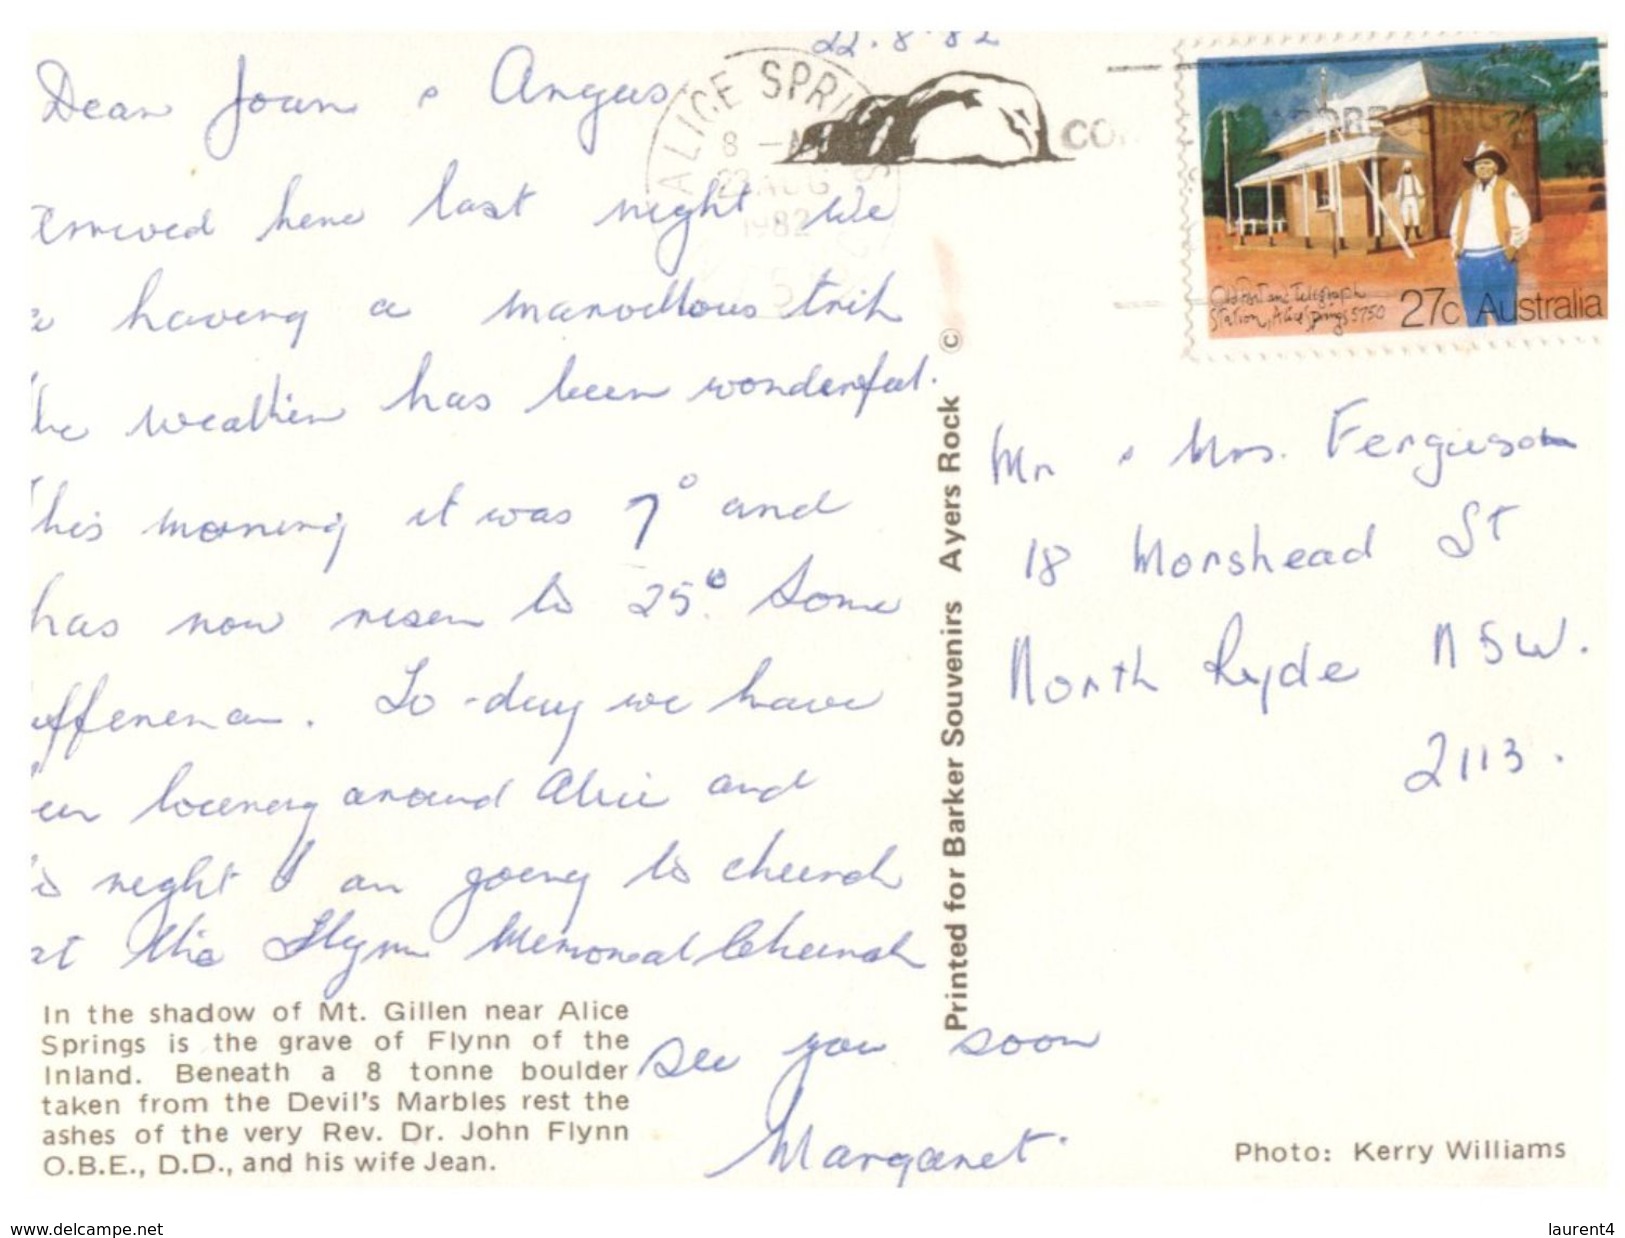 22.8.82
Dear Joan & Angus
Arrived here last night We
having a marvellous trip
the weather has been wonderful.
This morning it was 7° and
has now risen to 25°. Some
difference. To-day we have
been touring around Alice and
night I am going to church
at the Flynn Memorial Church
see you soon
Margaret.
In the shadow of Mt. Gillen near Alice
Springs is the grave of Flynn of the
Inland. Beneath a 8 tonne boulder
taken from the Devil's Marbles rest the
ashes of the very Rev. Dr. John Flynn
O.B.E., D.D., and his wife Jean.
Printed for Barker Souvenirs Ayers Rock ©
ALICE SPRINGS
8 -AM
22 AUG
1982
Old Post and Telegraph
Station, Alice Springs 5750
27c Australia
Mr & Mrs. Ferguson
18 Morshead St
North Ryde NSW.
2113.
Photo: Kerry Williams
www.delcampe.net
laurent4